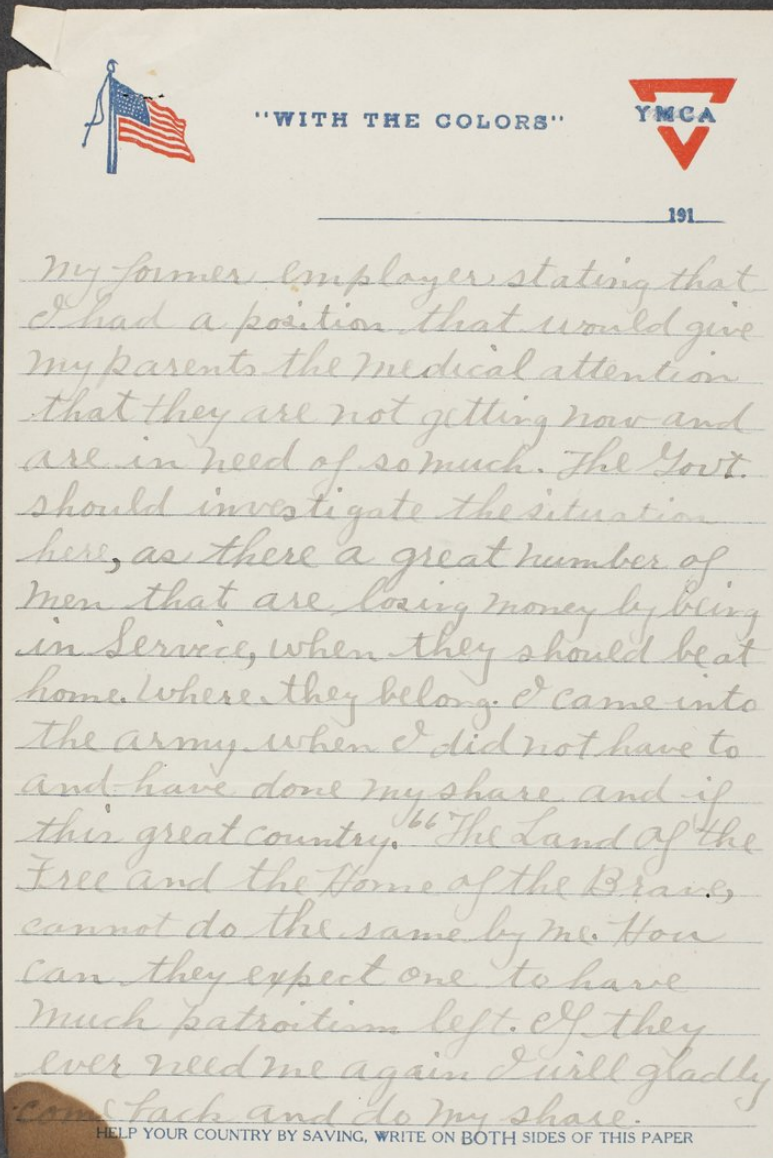 "WITH THE COLORS"
YMCA
191
My former employer stating that
I had a position that would give
my parents the medical attention
that they are not getting now and
are in need of so much. The Govt.
should investigate the situation
here, as there a great number of
men that are losing money by being
in Service, when they should be at
home. Where they belong. I came into
the army when I did not have to
and have done my share and if
this great country. "The Land Of the
Free and the Home of the Brave,
cannot do the same by me. How
can they expect one to have
much patroitism left. If they
ever need me again I will gladly
come back and do my share.
HELP YOUR COUNTRY BY SAVING, WRITE ON BOTH SIDES OF THIS PAPER